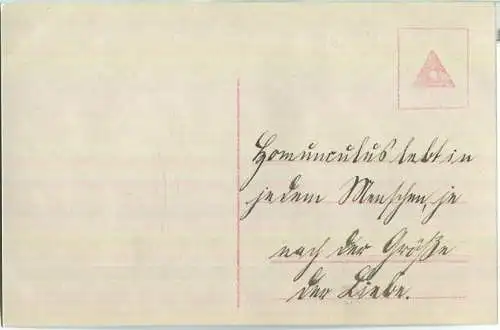 Homunculus lebt in
jedem Menschen, je
nach der Größe
der Liebe.